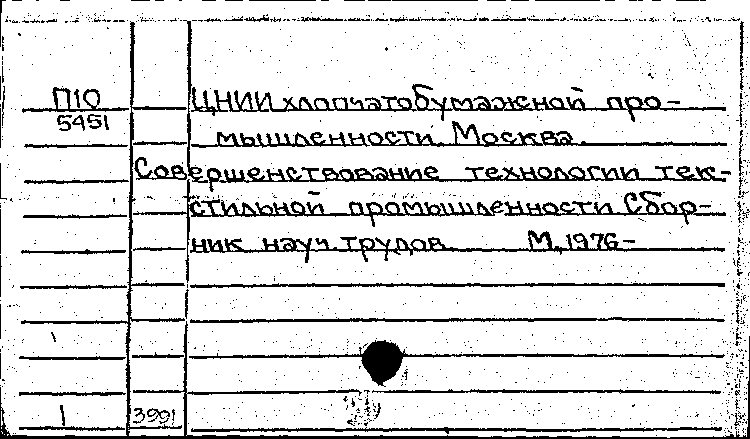 П10
5451
ЦНИИ хлопчатобумажной про-
мышленности. Москва.
Совершенствование технологии тек-
стильной промышленности. Сбор-
ник науч. трудов. М., 1976-
1
3991